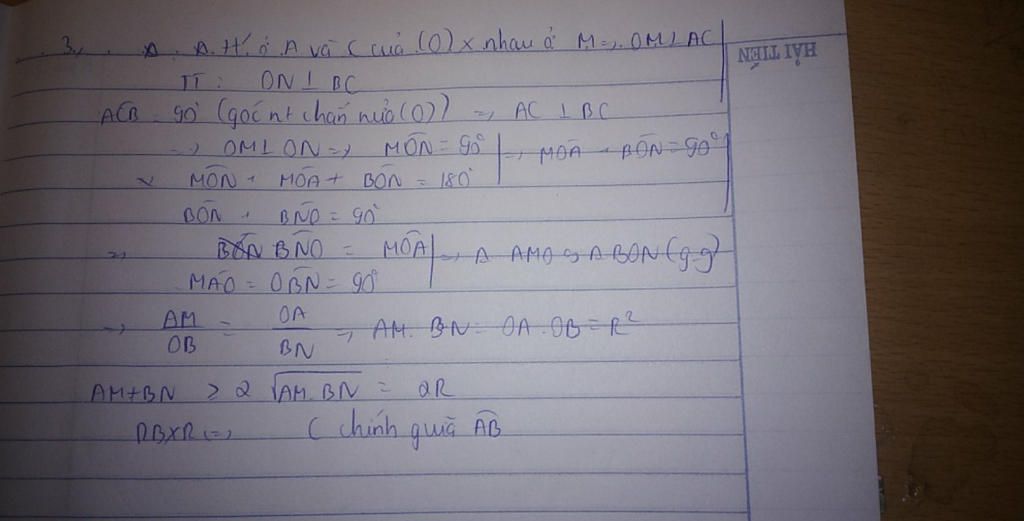 3.
. A. H. ở A và C của (O) x nhau ở M => OM ⊥ AC
TT: ON ⊥ BC
ACB = 90° (góc nt chắn nửa (O)) => AC ⊥ BC
=> OM ⊥ ON => MON = 90° | => MOA + BON = 90°
MON + MOA + BON = 180°
BON + BNO = 90°
=> BNO = MOA | => Δ AMO ∽ Δ BON (g-g)
MAO = OBN = 90°
=> AM/OB = OA/BN => AM. BN = OA. OB = R²
AM+BN ≥ 2 √AM. BN = 2R
DBXR <=> C chính giữa AB
HẢI TIẾN